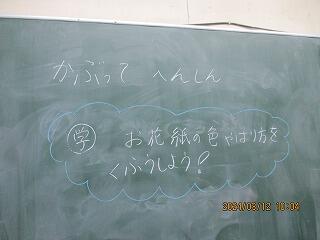 かぶって へんしん
学 お花紙の色やはり方を
くふうしよう!
2021/03/12 10:04